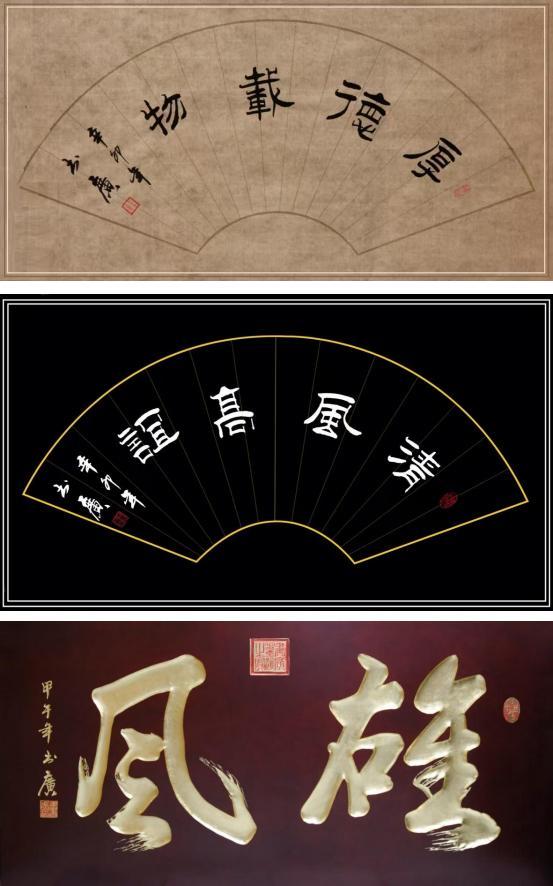 厚德載物
辛卯年
书廣
清風髙誼
辛卯年
书廣
雄風
甲午年书廣